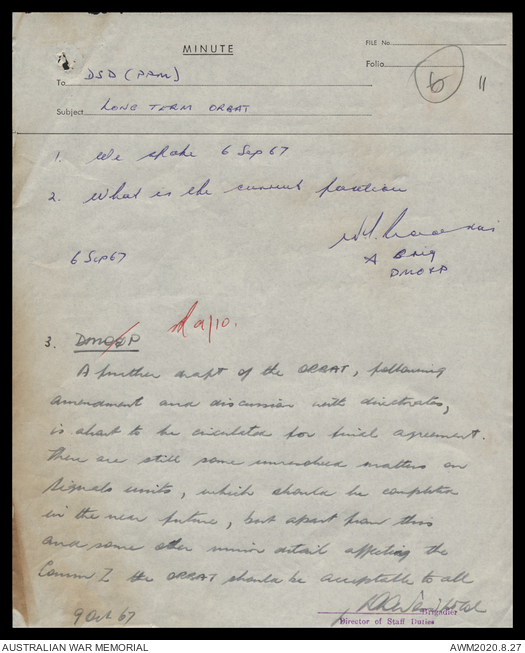 MINUTE
FILE No.
Folio
6
11
To DSD (PPM)
Subject LONG TERM ORBAT
1. We spoke 6 Sep 67
2. What is the current position
6 Sep 67
A Brig
DMO&P
9/10.
3. DMO&P
A further draft of the ORBAT, following
amendment and discussion with directorates,
is about to be circulated for final agreement.
There are still some unresolved matters on
Signals units, which should be completed
in the near future, but apart from this
and some other minor detail affecting the
Comm Z the ORBAT should be acceptable to all
9 Oct 67
Brigadier
Director of Staff Duties
AUSTRALIAN WAR MEMORIAL
AWM2020.8.27